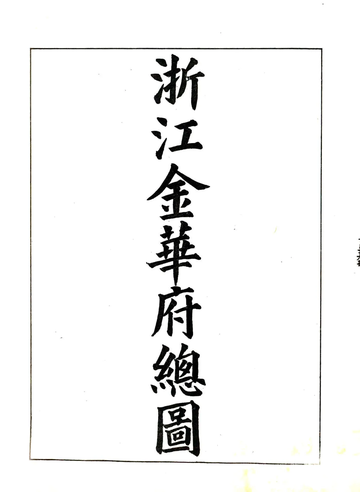 浙江金華府總圖